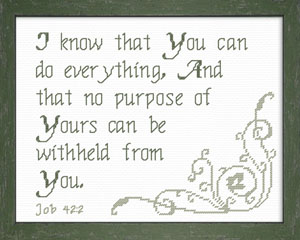 I know that You can
do everything, And
that no purpose of
Yours can be
withheld from
You.
Job 42:2